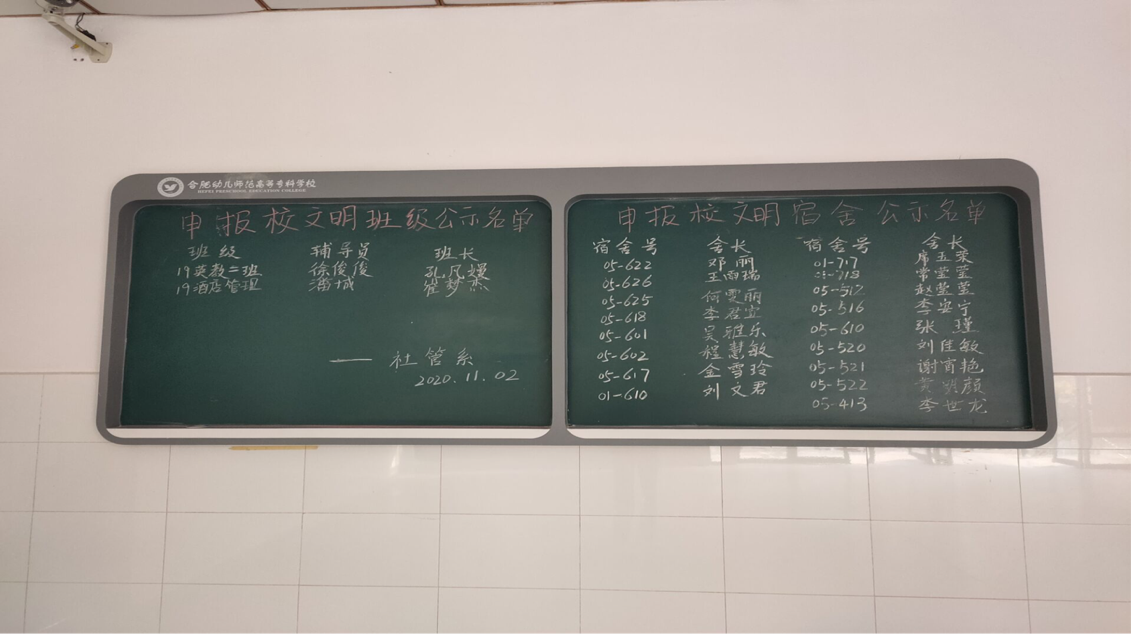 合肥幼儿师范高等专科学校
HEFEI PRESCHOOL EDUCATION COLLEGE
申报校文明班级公示名单
班级 辅导员 班长
19英教二班 徐俊俊 孔凤嫚
19酒店管理 潘城 崔梦杰
——社管系
2020.11.02
申报校文明宿舍公示名单
宿舍号 舍长 宿舍号 舍长
05-622 邓丽 01-717 席玉荣
05-626 王雨瑞 常莹莹
05-625 何雯丽 05-512 赵莹莹
05-618 李君宜 05-516 李安宁
05-601 吴雅乐 05-610 张瑾
05-602 程慧敏 05-520 刘佳敏
05-617 金雪玲 05-521 谢宵艳
01-610 刘文君 05-522 颜
05-413 李世龙